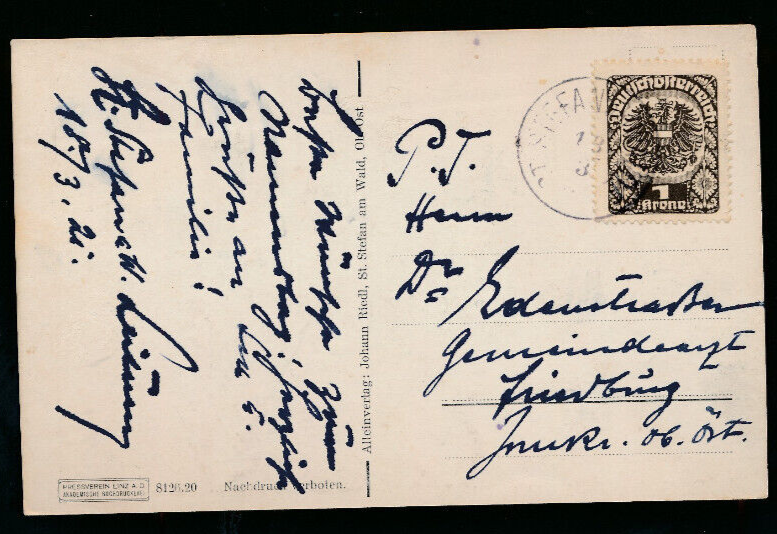 Besten Wünsche zum
Namenstag! Herzliche
Grüße an
Familie!
St. Stefan a. W.
18./3. 21.
Alleinverlag: Johann Riedl, St. Stefan am Wald, Ob.-Öst
PRESSVEREIN LINZ A. D.
AKADEMISCHE BUCHDRUCKEREI
8126.20 Nachdruck verboten.
ST. STEFAN
Deutschösterreich
1
Krone
P. T.
Herrn
Dr
Edenstraßer
Gemeindearzt
Friedburg
Innkr. ob. Öst.